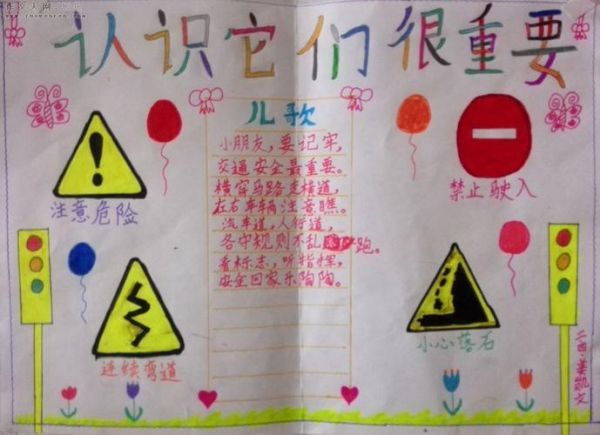 认识它们很重要
儿歌
小朋友，要记牢，
交通安全最重要。
横穿马路走横道，
左右车辆注意瞧。
汽车道，人行道，
各守规则不乱跑。
看标志，听指挥，
安全回家乐陶陶。
注意危险
禁止驶入
连续弯道
小心落石
二四·姜凯文